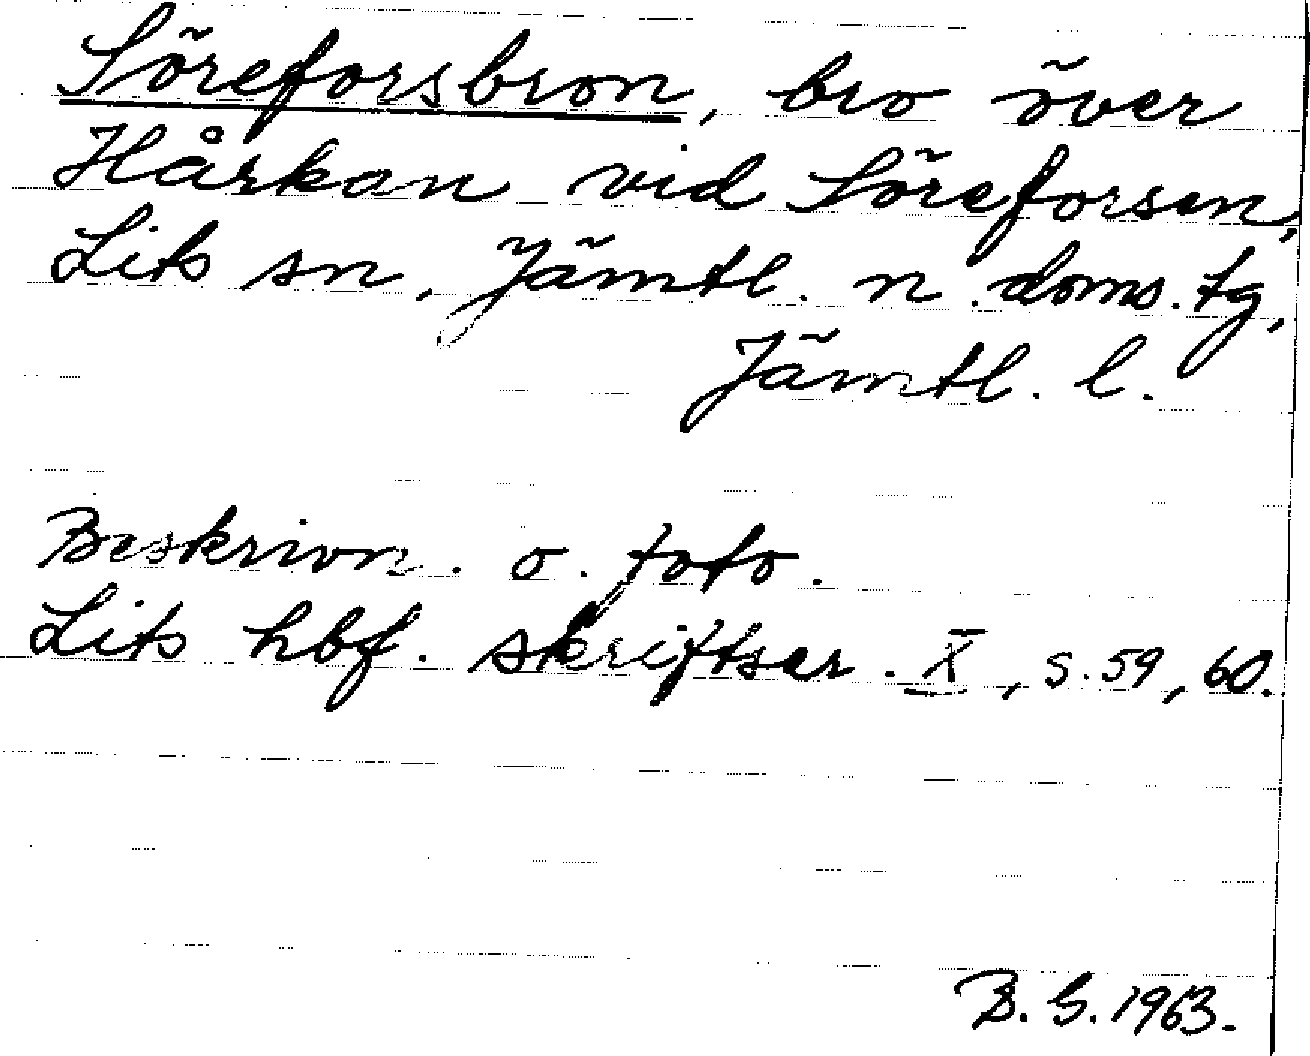 Söreforsbron, bro över
Hårkan vid Söreforsen,
Lits sn, Jämtl. n. doms. tg,
Jämtl. l.
Beskrivn. o. foto.
Lits hbf. skriftser. X, s. 59, 60.
B. G. 1963.